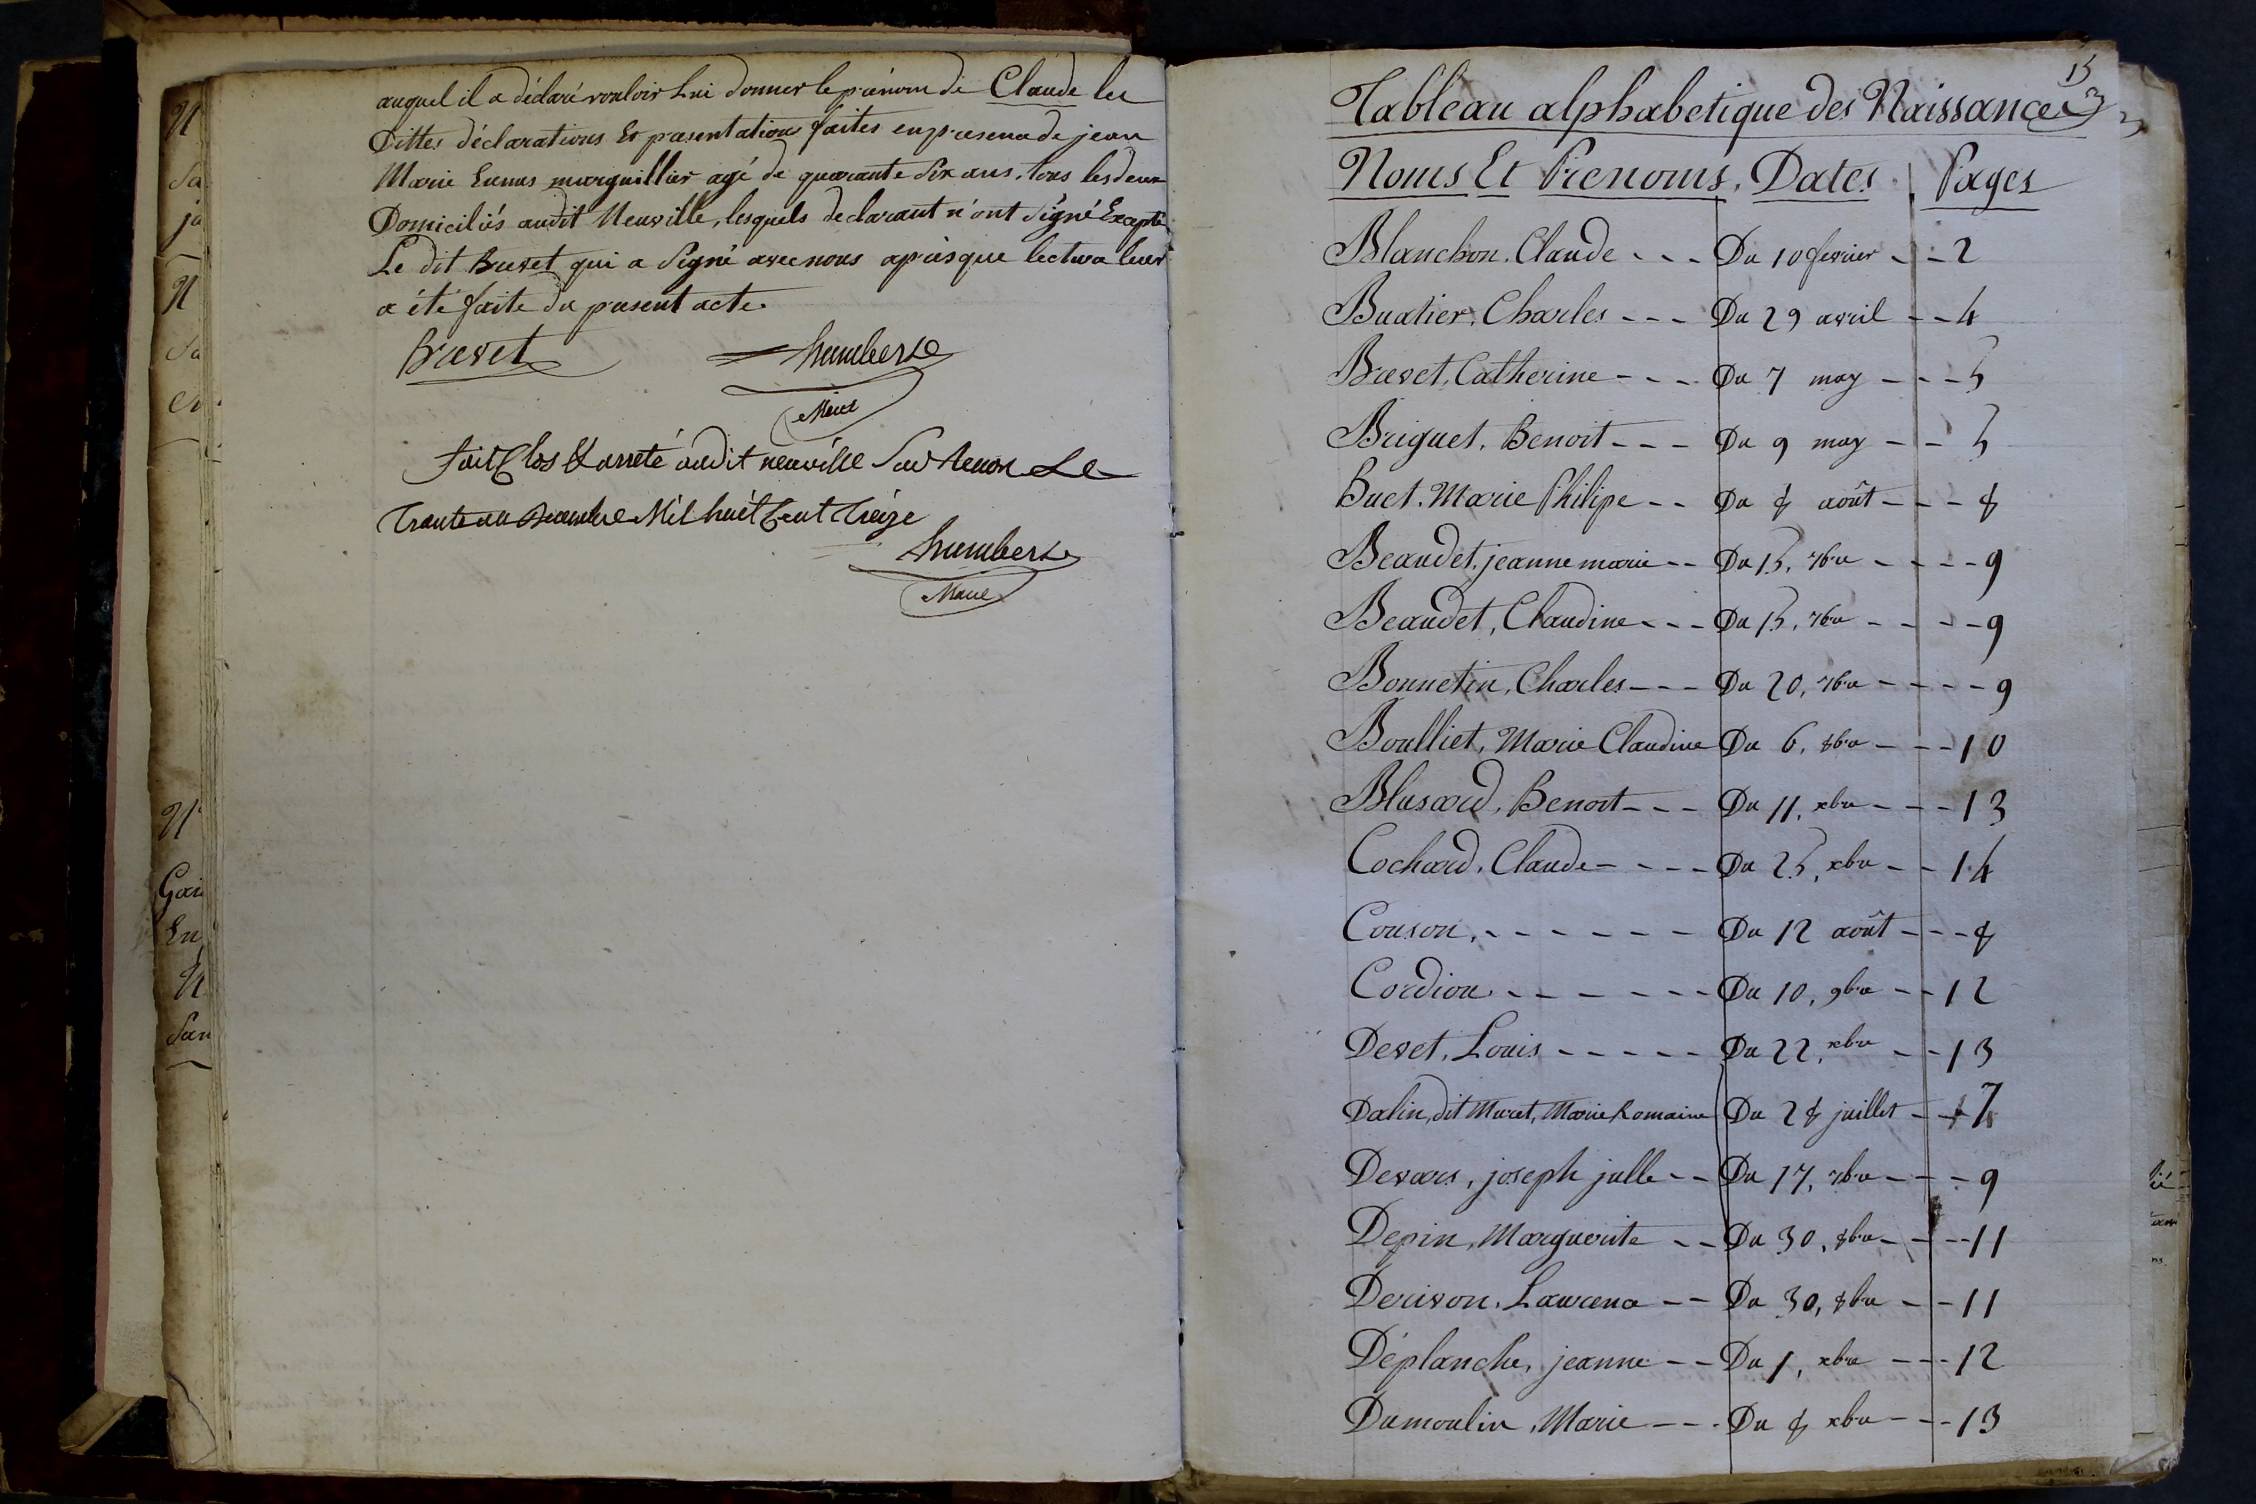 auquel il a déclaré vouloir Lui donner le prénom de Claude les
Dittes déclarations Et presentations faites en presence de jean
Marie marguillier agé de quarante Six ans, tous les deux
Domiciliés audit Neuville, lesquels declarant n'ont Signé Excepté
Le dit Brevet qui a Signé avec nous après que lecture leur
a été faite du present acte.
Brevet humbert
Maire
fait Clos & arreté audit neuville Sur Renon Le
Trante un Decembre Mil huit Cent Treize
humbert
Maire
N
Sa
ja
N
Sa
en
N
Gar
En
N
San
15
Tableau alphabetique des Naissances
Noms Et Prenoms. Dates Pages
Blanchon. Claude - - - Du 10 fevrier - - 2
Buatier. Charles - - - Du 29 avril - - 4
Brevet, Catherine - - - Du 7 may - - - 5
Briguet, Benoit - - - Du 9 may - - 5
Buet. Marie Philipe - - Du 8 août - - - 8
Beaudet. jeanne marie - - Du 15, 7bre - - - - 9
Beaudet, Claudine - - - Du 15, 7bre - - - - 9
Bonnetin, Charles - - - Du 20, 7bre - - - - 9
Boulliet, Marie Claudine Du 6, 8bre - - - 10
Blusard, Benoit - - - Du 11, xbre - - - 13
Cochard, Claude - - - - Du 25, xbre - - 14
Couson, - - - - - - Du 12 août - - - 8
Cordion - - - - - - Du 10, 9bre - - 12
Devet, Louis - - - - - Du 22, xbre - - 13
Dalin, dit Muret, Marie Romaine Du 28 juillet - - 7
Devars, joseph julle - - Du 17, 7bre - - - 9
Depin, Marguerite - - Du 30, 8bre - - - 11
Derivon, Laurence - - Du 30, 8bre - - 11
Déplanche, jeanne - - Du 1, xbre - - - 12
Dumoulin, Marie - - - Du 8 xbre - - - 13